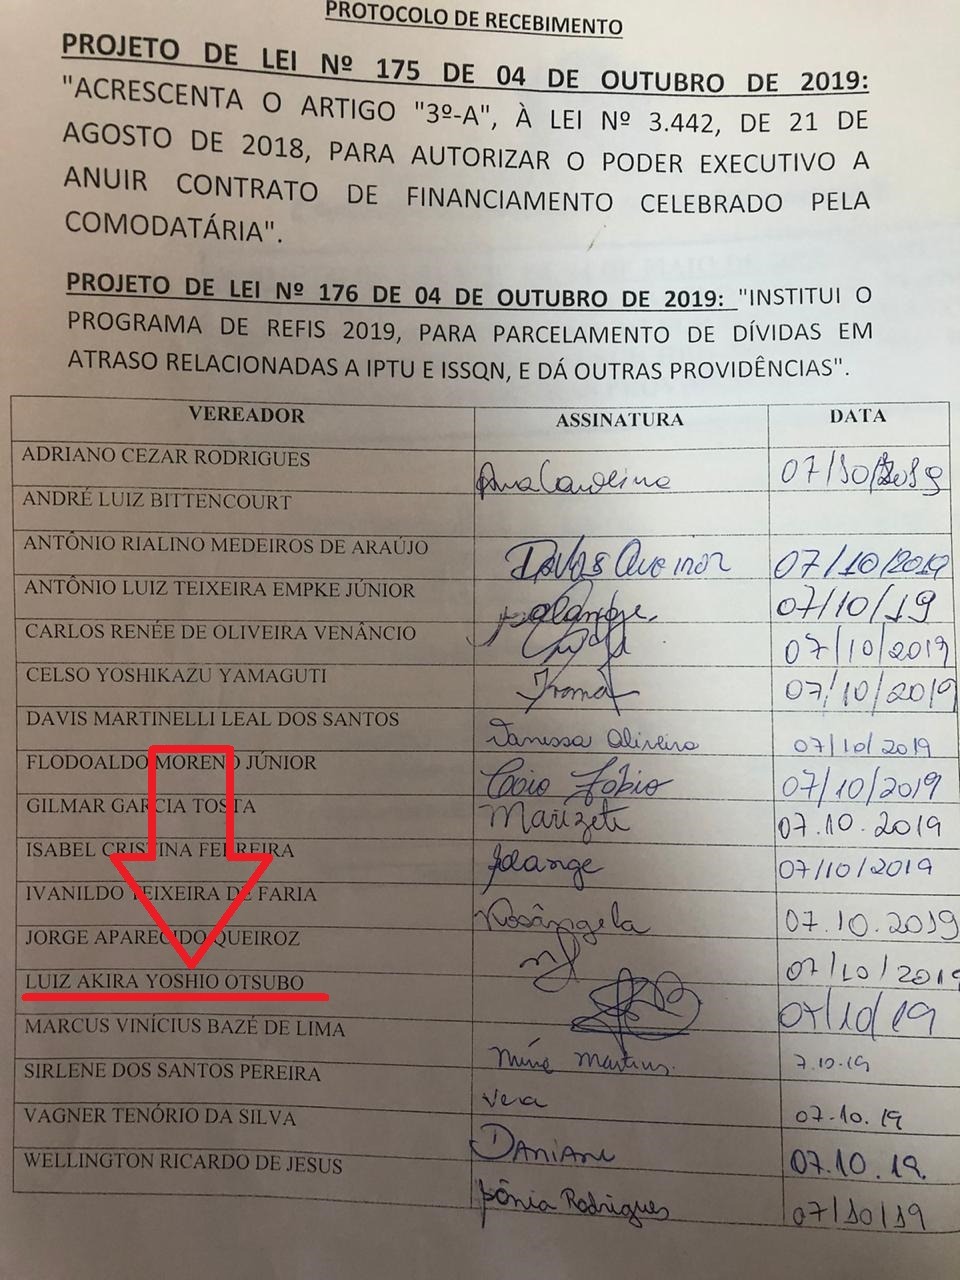 PROTOCOLO DE RECEBIMENTO
PROJETO DE LEI Nº 175 DE 04 DE OUTUBRO DE 2019:
"ACRESCENTA O ARTIGO "3º-A", À LEI Nº 3.442, DE 21 DE
AGOSTO DE 2018, PARA AUTORIZAR O PODER EXECUTIVO A
ANUIR CONTRATO DE FINANCIAMENTO CELEBRADO PELA
COMODATÁRIA".
PROJETO DE LEI Nº 176 DE 04 DE OUTUBRO DE 2019: "INSTITUI O
PROGRAMA DE REFIS 2019, PARA PARCELAMENTO DE DÍVIDAS EM
ATRASO RELACIONADAS A IPTU E ISSQN, E DÁ OUTRAS PROVIDÊNCIAS".
VEREADOR ASSINATURA DATA
ADRIANO CEZAR RODRIGUES Ana Carolina 07/10/2019
ANDRÉ LUIZ BITTENCOURT
ANTÔNIO RIALINO MEDEIROS DE ARAÚJO 07/10/2019
ANTÔNIO LUIZ TEIXEIRA EMPKE JÚNIOR 07/10/19
CARLOS RENÉE DE OLIVEIRA VENÂNCIO 07/10/2019
CELSO YOSHIKAZU YAMAGUTI 07/10/2019
DAVIS MARTINELLI LEAL DOS SANTOS Vanessa Oliveira 07/10/2019
FLODOALDO MORENO JÚNIOR Caio Fábio 07/10/2019
GILMAR GARCIA TOSTA Marizete 07.10.2019
ISABEL CRISTINA FERREIRA Solange 07/10/2019
IVANILDO TEIXEIRA DE FARIA Rosângela 07.10.2019
JORGE APARECIDO QUEIROZ 07/10/2019
LUIZ AKIRA YOSHIO OTSUBO 07/10/19
MARCUS VINÍCIUS BAZÉ DE LIMA Martins 7.10.19
SIRLENE DOS SANTOS PEREIRA Vera 07.10.19
VAGNER TENÓRIO DA SILVA 07.10.19.
WELLINGTON RICARDO DE JESUS Sônia Rodrigues 07/10/19